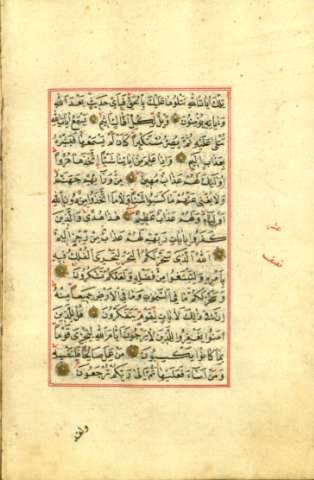 تِلْكَ اٰيَاتُ اللهِ نَتْلُوهَا عَلَيْكَ بِالْحَقِّ فَبِاَيِّ حَدِيثٍ بَعْدَ اللهِ
وَاٰيَاتِهِ يُؤْمِنُونَ وَيْلٌ لِكُلِّ اَفَّاكٍ اَثِيمٍ يَسْمَعُ اٰيَاتِ اللهِ
تُتْلٰى عَلَيْهِ ثُمَّ يُصِرُّ مُسْتَكْبِرًا كَاَنْ لَمْ يَسْمَعْهَا فَبَشِّرْهُ
بِعَذَابٍ اَلِيمٍ وَاِذَا عَلِمَ مِنْ اٰيَاتِنَا شَيْئًا اتَّخَذَهَا هُزُوًا
اُولٰئِكَ لَهُمْ عَذَابٌ مُهِينٌ مِنْ وَرَائِهِمْ جَهَنَّمُ
وَلَا يُغْنِي عَنْهُمْ مَا كَسَبُوا شَيْئًا وَلَا مَا اتَّخَذُوا مِنْ دُونِ اللهِ
اَوْلِيَاءَ وَلَهُمْ عَذَابٌ عَظِيمٌ هٰذَا هُدًى وَالَّذِينَ
كَفَرُوا بِاٰيَاتِ رَبِّهِمْ لَهُمْ عَذَابٌ مِنْ رِجْزٍ اَلِيمٌ
اَللهُ الَّذِي سَخَّرَ لَكُمُ الْبَحْرَ لِتَجْرِيَ الْفُلْكُ فِيهِ
بِاَمْرِهِ وَلِتَبْتَغُوا مِنْ فَضْلِهِ وَلَعَلَّكُمْ تَشْكُرُونَ
وَسَخَّرَ لَكُمْ مَا فِي السَّمٰوَاتِ وَمَا فِي الْاَرْضِ جَمِيعًا مِنْهُ
اِنَّ فِي ذٰلِكَ لَاٰيَاتٍ لِقَوْمٍ يَتَفَكَّرُونَ قُلْ لِلَّذِينَ
اٰمَنُوا يَغْفِرُوا لِلَّذِينَ لَا يَرْجُونَ اَيَّامَ اللهِ لِيَجْزِيَ قَوْمًا
بِمَا كَانُوا يَكْسِبُونَ مَنْ عَمِلَ صَالِحًا فَلِنَفْسِهِ
وَمَنْ اَسَاءَ فَعَلَيْهَا ثُمَّ اِلٰى رَبِّكُمْ تُرْجَعُونَ
ولقد